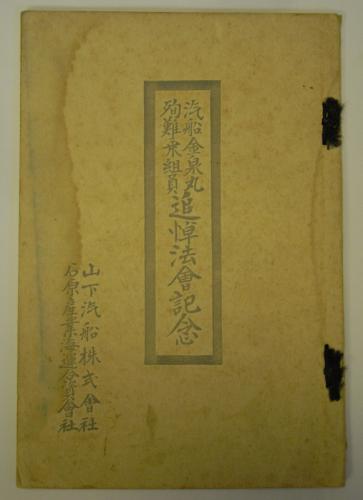 汽船金泉丸
殉難乗組員
追悼法會記念
山下汽船株式會社
石原産業海運合資會社